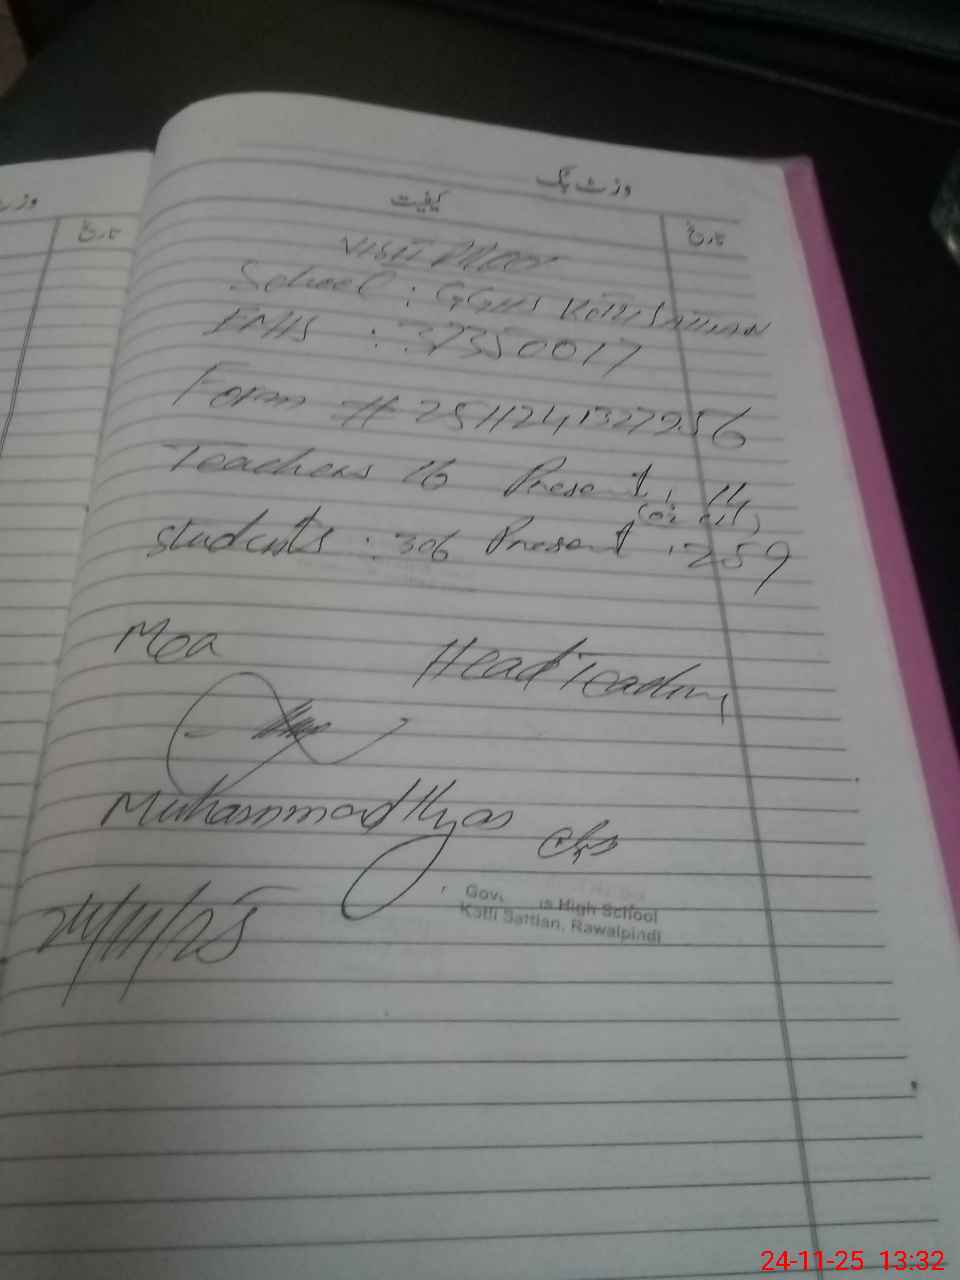 وزٹ بک
کیفیت
تاریخ
تاریخ
VISIT
School : GGHS Kotli Sattian
EMIS : 37350017
Form # 251124132256
Teachers 16 Present : 14
students : 306 Present : 259
Mea
Head Teacher
Muhammad Ilyas
High School
Kotli Sattian, Rawalpindi
24/11/25
24-11-25 13:32